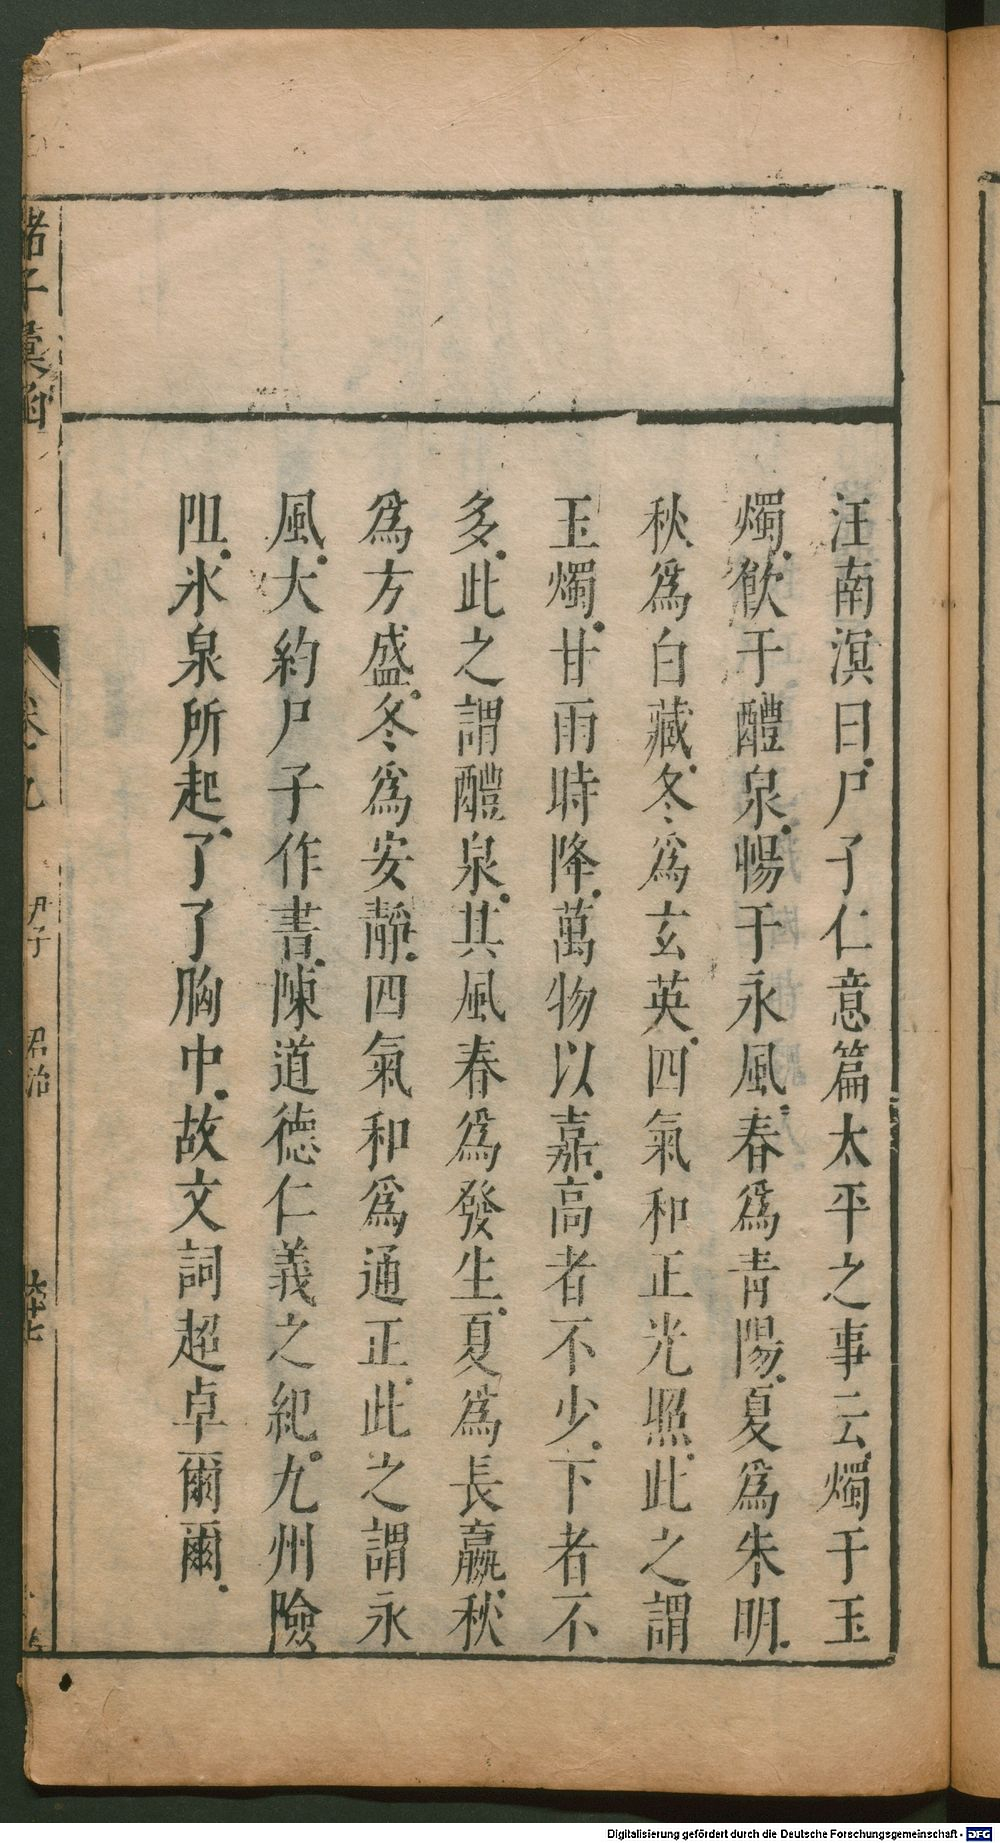 汪南溟曰尸子仁意篇太平之事云燭于玉
燭飲于醴泉暢于永風春爲青陽夏爲朱明
秋爲白藏冬爲玄英四氣和正光照此之謂
玉燭甘雨時降萬物以嘉高者不少下者不
多此之謂醴泉其風春爲發生夏爲長嬴秋
爲方盛冬爲安靜四氣和爲通正此之謂永
風大約尸子作書陳道德仁義之紀九州險
阻水泉所起了了胸中故文詞超卓爾爾
諸子彙函
卷九
尹子
君治
Digitalisierung gefördert durch die Deutsche Forschungsgemeinschaft - DFG